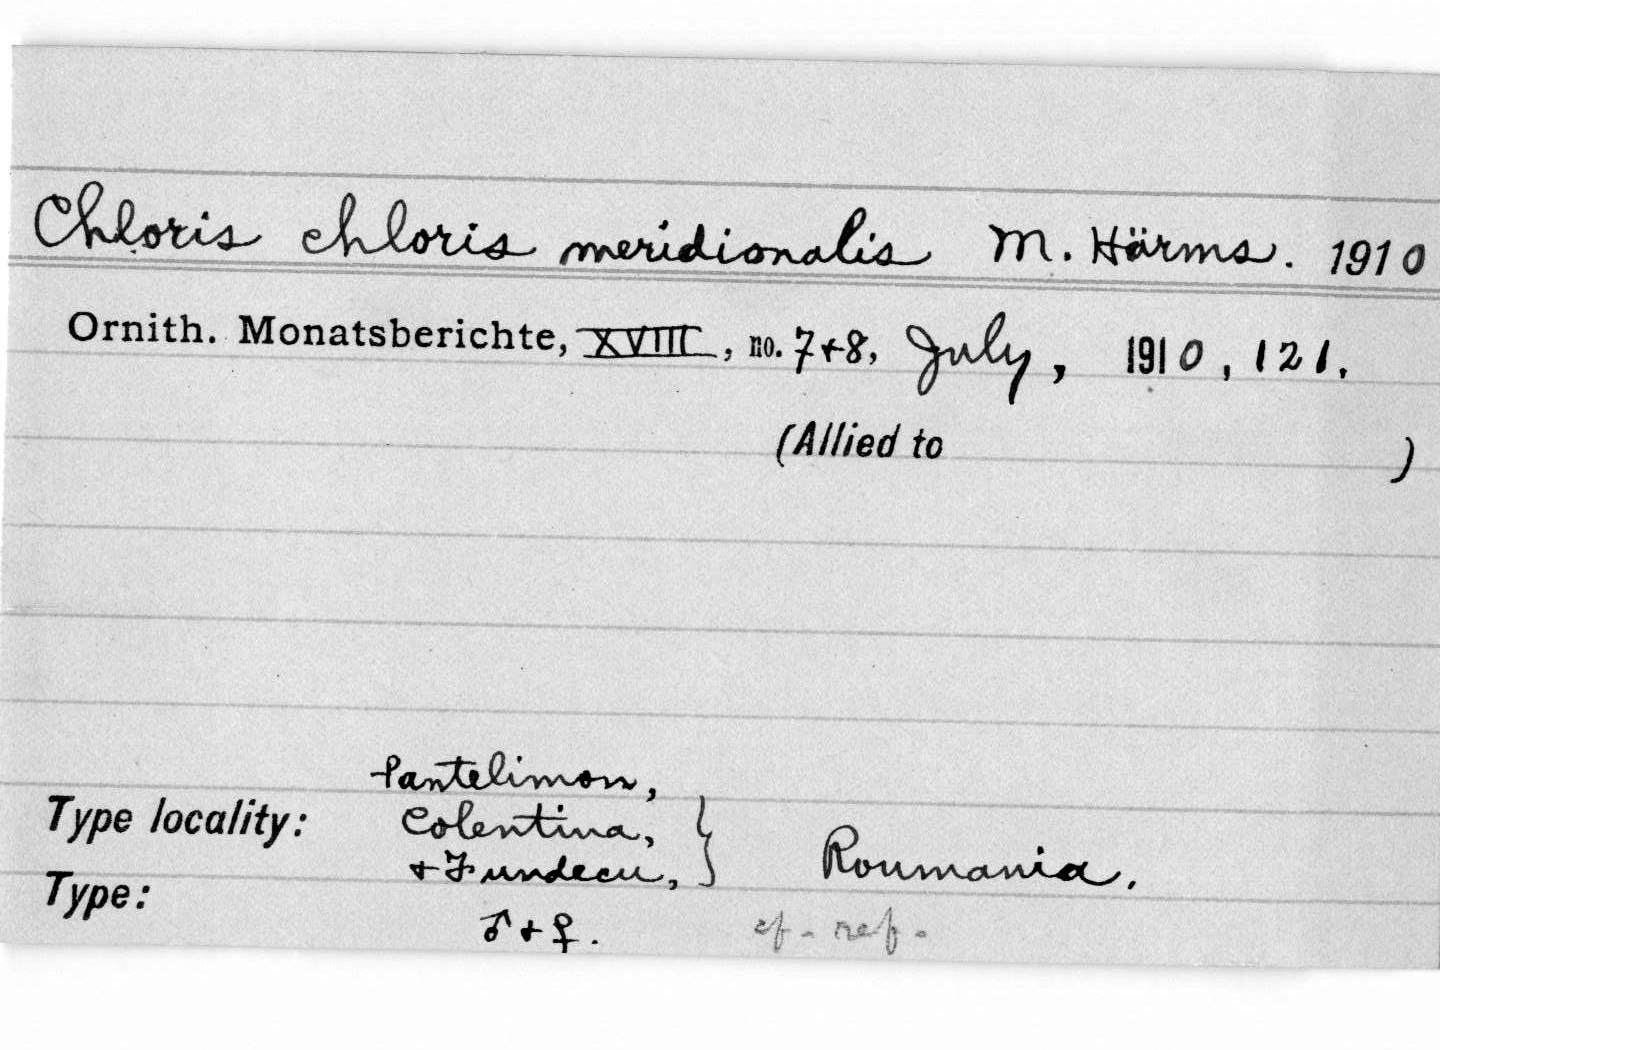 Chloris chloris meridionalis M. Härms. 1910
Ornith. Monatsberichte, XVIII, no. 7+8, July, 1910, 121.
(Allied to )
Pantelimon,
Type locality: Colentina,
+ Fundecu, } Roumania.
Type:
♂ + ♀. cf. ref.